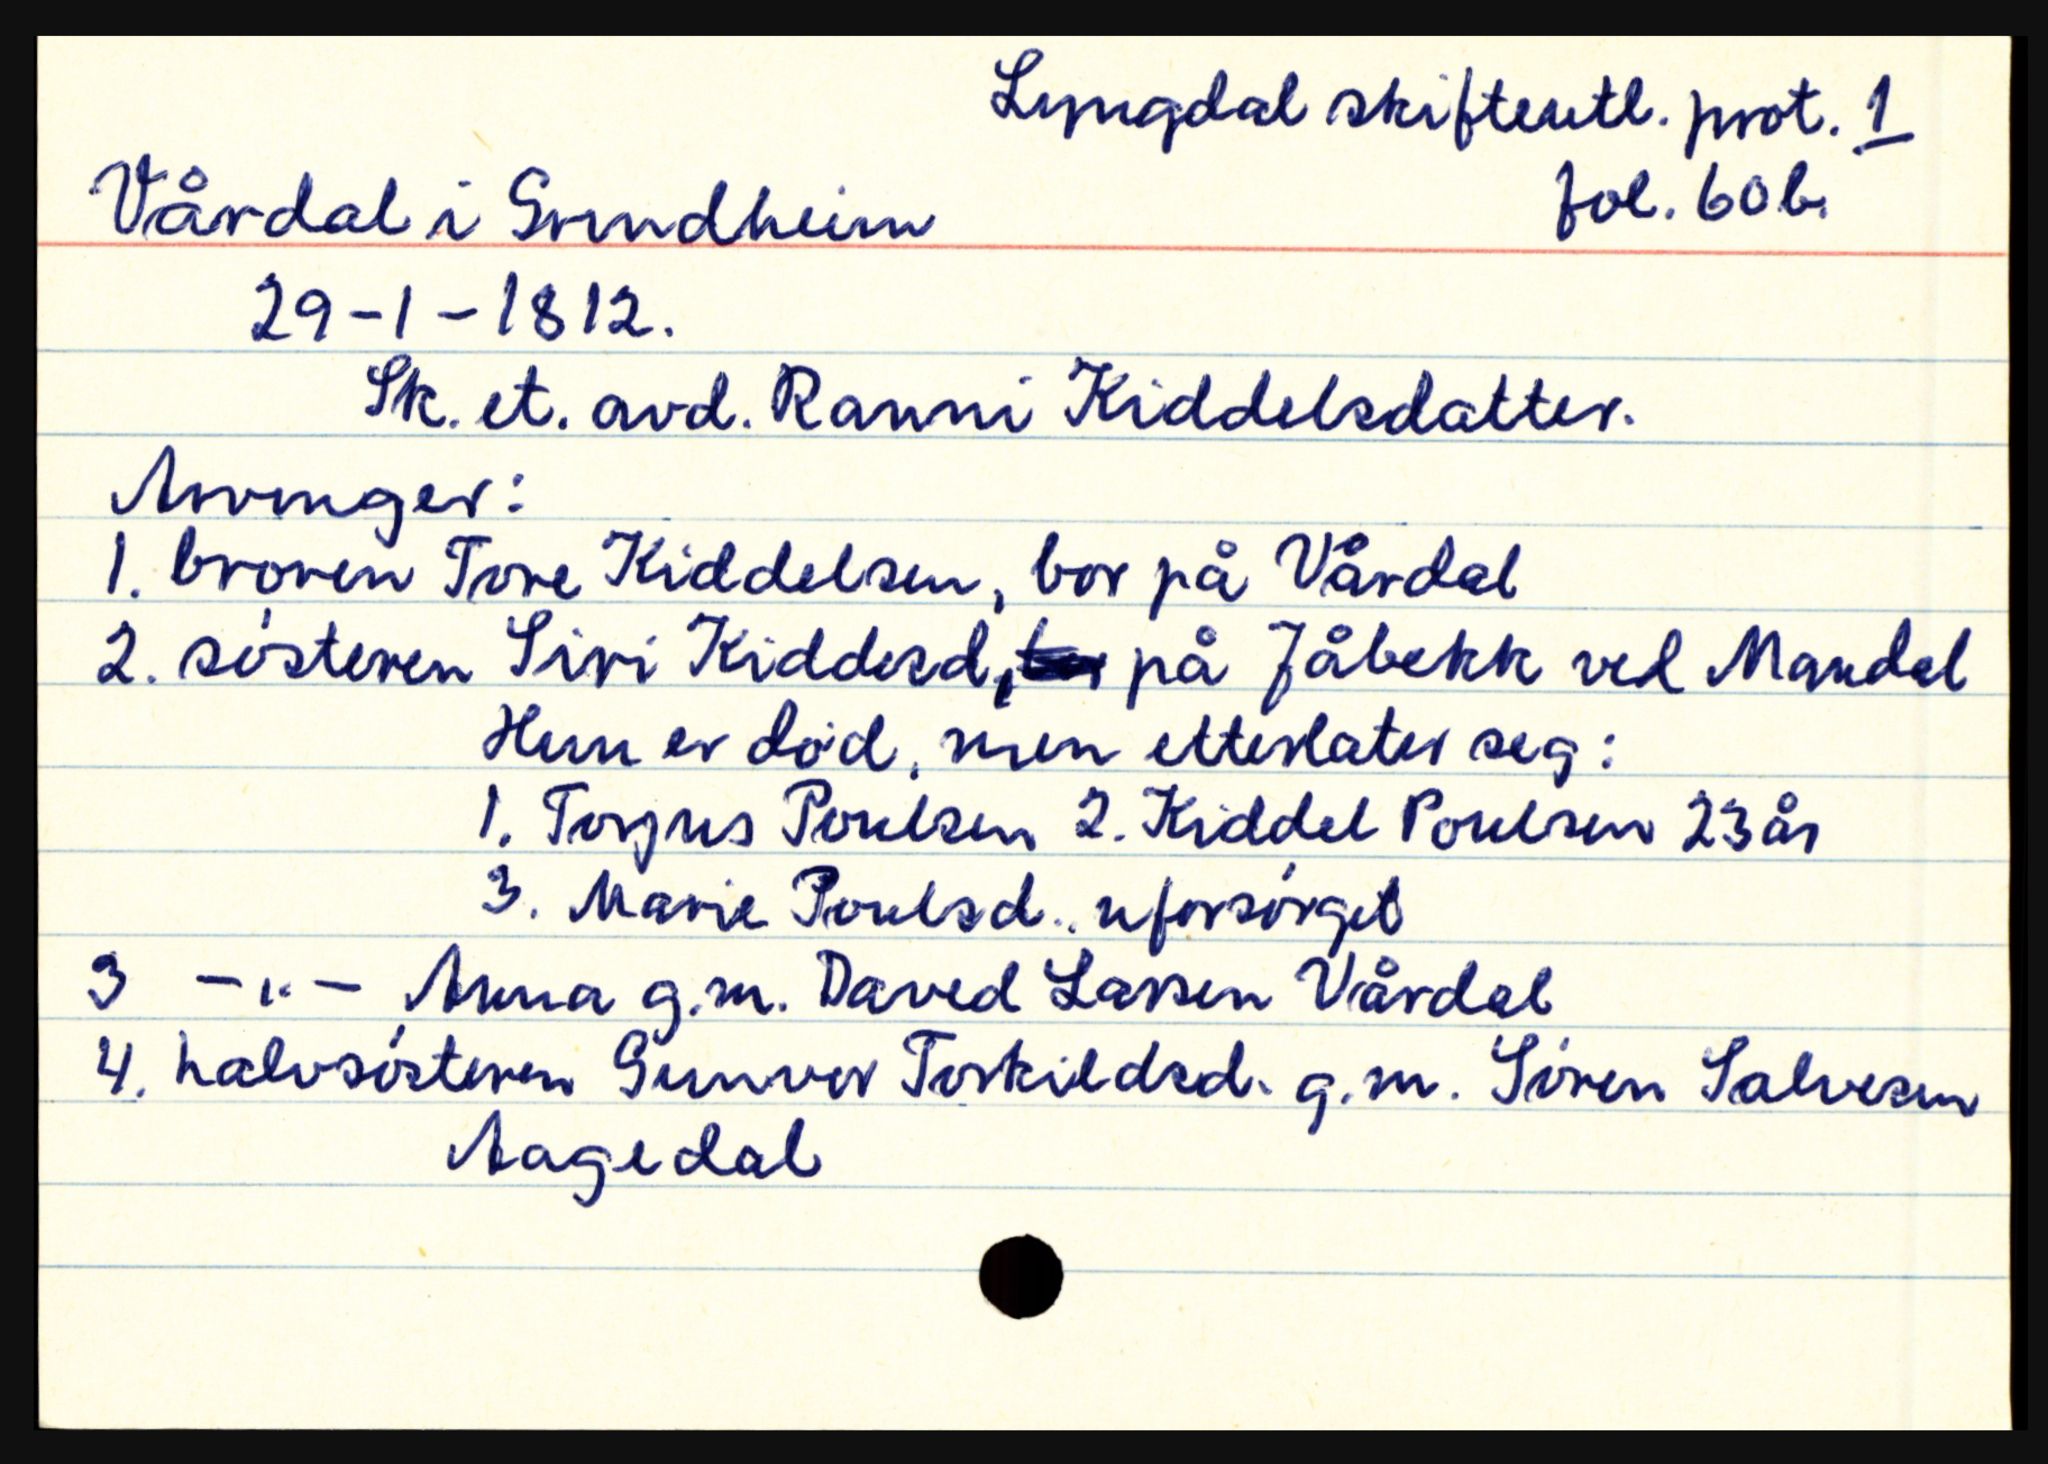 Lyngdal skifteutl. prot. 1
Vårdal i Grindheim fol. 60b.
29-1-1812.
Sk. et. avd. Ranni Kiddelsdatter.
Arvinger:
1. broren Tore Kiddelsen, bor på Vårdal
2. søsteren Siri Kiddelsd, på Jåbekk ved Mandal
Hun er død, men etterlater seg:
1. Torjus Poulsen 2. Kiddel Poulsen 23 år
3. Marie Poulsd. uforsørget
3 -"- Anna g.m. Daved Larsen Vårdal
4. halvsøsteren Gunvor Torkildsd. g.m. Søren Salvesen
Aagedal